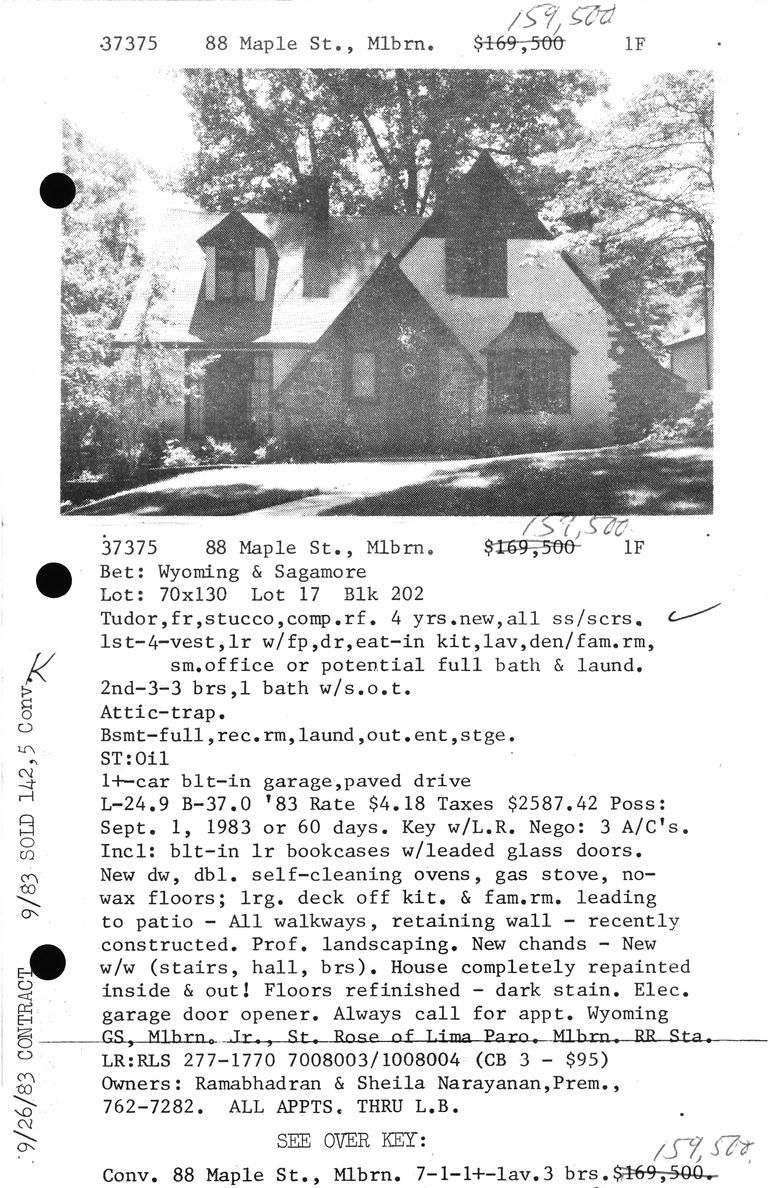 159,500
37375 88 Maple St., Mlbrn. $169,500 1F
159,500
37375 88 Maple St., Mlbrn. $169,500 1F
Bet: Wyoming & Sagamore
Lot: 70x130 Lot 17 Blk 202
Tudor,fr,stucco,comp.rf. 4 yrs.new,all ss/scrs.
1st-4-vest,lr w/fp,dr,eat-in kit,lav,den/fam.rm,
sm.office or potential full bath & laund.
2nd-3-3 brs,1 bath w/s.o.t.
Attic-trap.
Bsmt-full,rec.rm,laund,out.ent,stge.
ST:Oil
1+-car blt-in garage,paved drive
L-24.9 B-37.0 '83 Rate $4.18 Taxes $2587.42 Poss:
Sept. 1, 1983 or 60 days. Key w/L.R. Nego: 3 A/C's.
Incl: blt-in lr bookcases w/leaded glass doors.
New dw, dbl. self-cleaning ovens, gas stove, no-
wax floors; lrg. deck off kit. & fam.rm. leading
to patio - All walkways, retaining wall - recently
constructed. Prof. landscaping. New chands - New
w/w (stairs, hall, brs). House completely repainted
inside & out! Floors refinished - dark stain. Elec.
garage door opener. Always call for appt. Wyoming
GS, Mlbrn. Jr., St. Rose of Lima Paro. Mlbrn. RR Sta.
LR:RLS 277-1770 7008003/1008004 (CB 3 - $95)
Owners: Ramabhadran & Sheila Narayanan,Prem.,
762-7282. ALL APPTS. THRU L.B.
SEE OVER KEY:
159,500.
Conv. 88 Maple St., Mlbrn. 7-1-1+-lav.3 brs.$169,500.
9/26/83 CONTRACT 9/83 SOLD 142,5 Conv. K